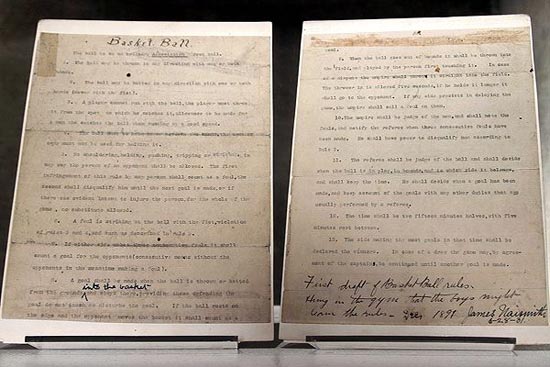 Basket Ball.
The ball to be an ordinary Association foot ball.
1. The ball may be thrown in any direction with one or both
hands.
2. The ball may be batted in any direction with one or both
hands (never with the fist).
3. A player cannot run with the ball, the player must throw
it from the spot on which he catches it, allowance to be made for
a man who catches the ball when running at a good speed.
4. The ball must be held
must not be used for holding it.
5. No shouldering, holding, pushing, tripping or
in any way the person of an opponent shall be allowed. The first
infringement of this rule by any person shall count as a foul, the
second shall disqualify him until the next goal is made, or if
there was evident intent to injure the person, for the whole of the
game, no substitute allowed.
6. A foul is striking at the ball with the fist, violation
of rules 3 and 4, and such as described in rule 5.
7. If either side makes three consecutive fouls it shall
count a goal for the opponents (consecutive means without the
opponents in the meantime making a foul).
8. A goal shall be made when the ball is thrown or batted
into the basket
from the grounds and stays there, providing those defending the
goal do not touch or disturb the goal. If the ball rests on the
edge and the opponent moves the basket it shall count as a
goal.
9. When the ball goes out of bounds it shall be thrown into
the field, and played by the person first touching it. In case
of a dispute the umpire shall throw it straight into the field.
The thrower in is allowed five seconds, if he holds it longer it
shall go to the opponent. If any side persists in delaying the
game, the umpire shall call a foul on them.
10. The umpire shall be judge of the men, and shall note the
fouls, and notify the referee when three consecutive fouls have
been made. He shall have power to disqualify men according to
Rule 5.
11. The referee shall be judge of the ball and shall decide
when the ball is in play, in bounds, and to which side it belongs,
and shall keep the time. He shall decide when a goal has been
made, and keep account of the goals with any other duties that are
usually performed by a referee.
12. The time shall be two fifteen minutes halves, with five
minutes rest between.
13. The side making the most goals in that time shall be
declared the winners. In case of a draw the game may, by agree-
ment of the captains, be continued until another goal is made.
First draft of Basket Ball rules.
Hung in the gym that the boys might
learn the rules - Dec 1891 James Naismith
6-28-31.